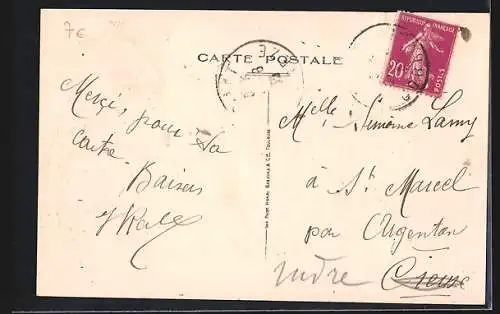 7€
CARTE POSTALE
RÉPUBLIQUE FRANÇAISE
20
POSTES
Merci, pour ta
carte.
Baisers
Mlle Simone Lamy
à St Marcel
par Argenton
Indre Creuse